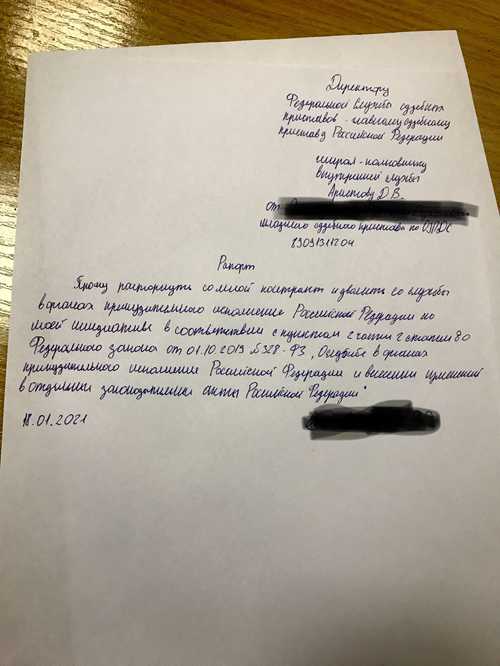 Директору
Федеральной службы судебных
приставов - главному судебному
приставу Российской Федерации
генерал-полковнику
внутренней службы
Аристову Д.В.
от
младшего судебного пристава по ОУПДС
89091311204
Рапорт
Прошу расторгнуть со мной контракт и уволить со службы
в органах принудительного исполнения Российской Федерации по
моей инициативе в соответствии с пунктом 2 части 2 статьи 80
Федерального закона от 01.10.2019 №328-ФЗ „О службе в органах
принудительного исполнения Российской Федерации и внесении изменений
в отдельные законодательные акты Российской Федерации"
18.01.2021